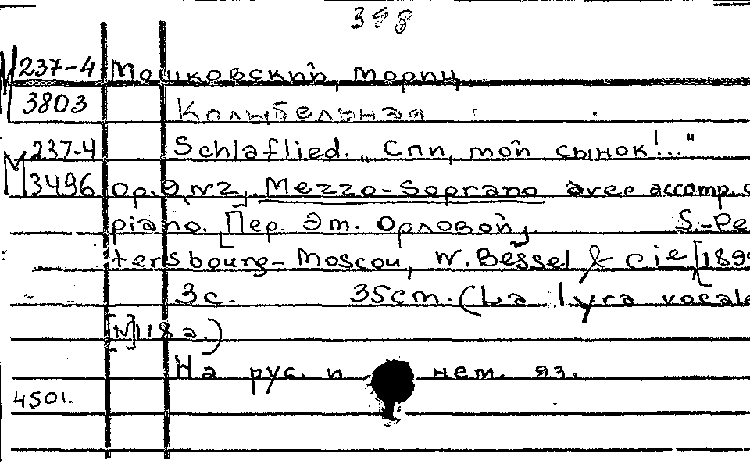 398
М 237-4 Мошковский, Мориц
3803 Колыбельная
М 237-4 Schlaflied. „Спи, мой сынок!..."
3496 op. 9, N2, Mezzo-Soprano avec accomp. d
piano. [Пер. Эт. Орловой]. S.-Pe
tersbourg-Moscou, W. Bessel & Cie, [189
3с. 35cm. (La lyra vocale
[N]118a)
На рус. и нем. яз.
4501.